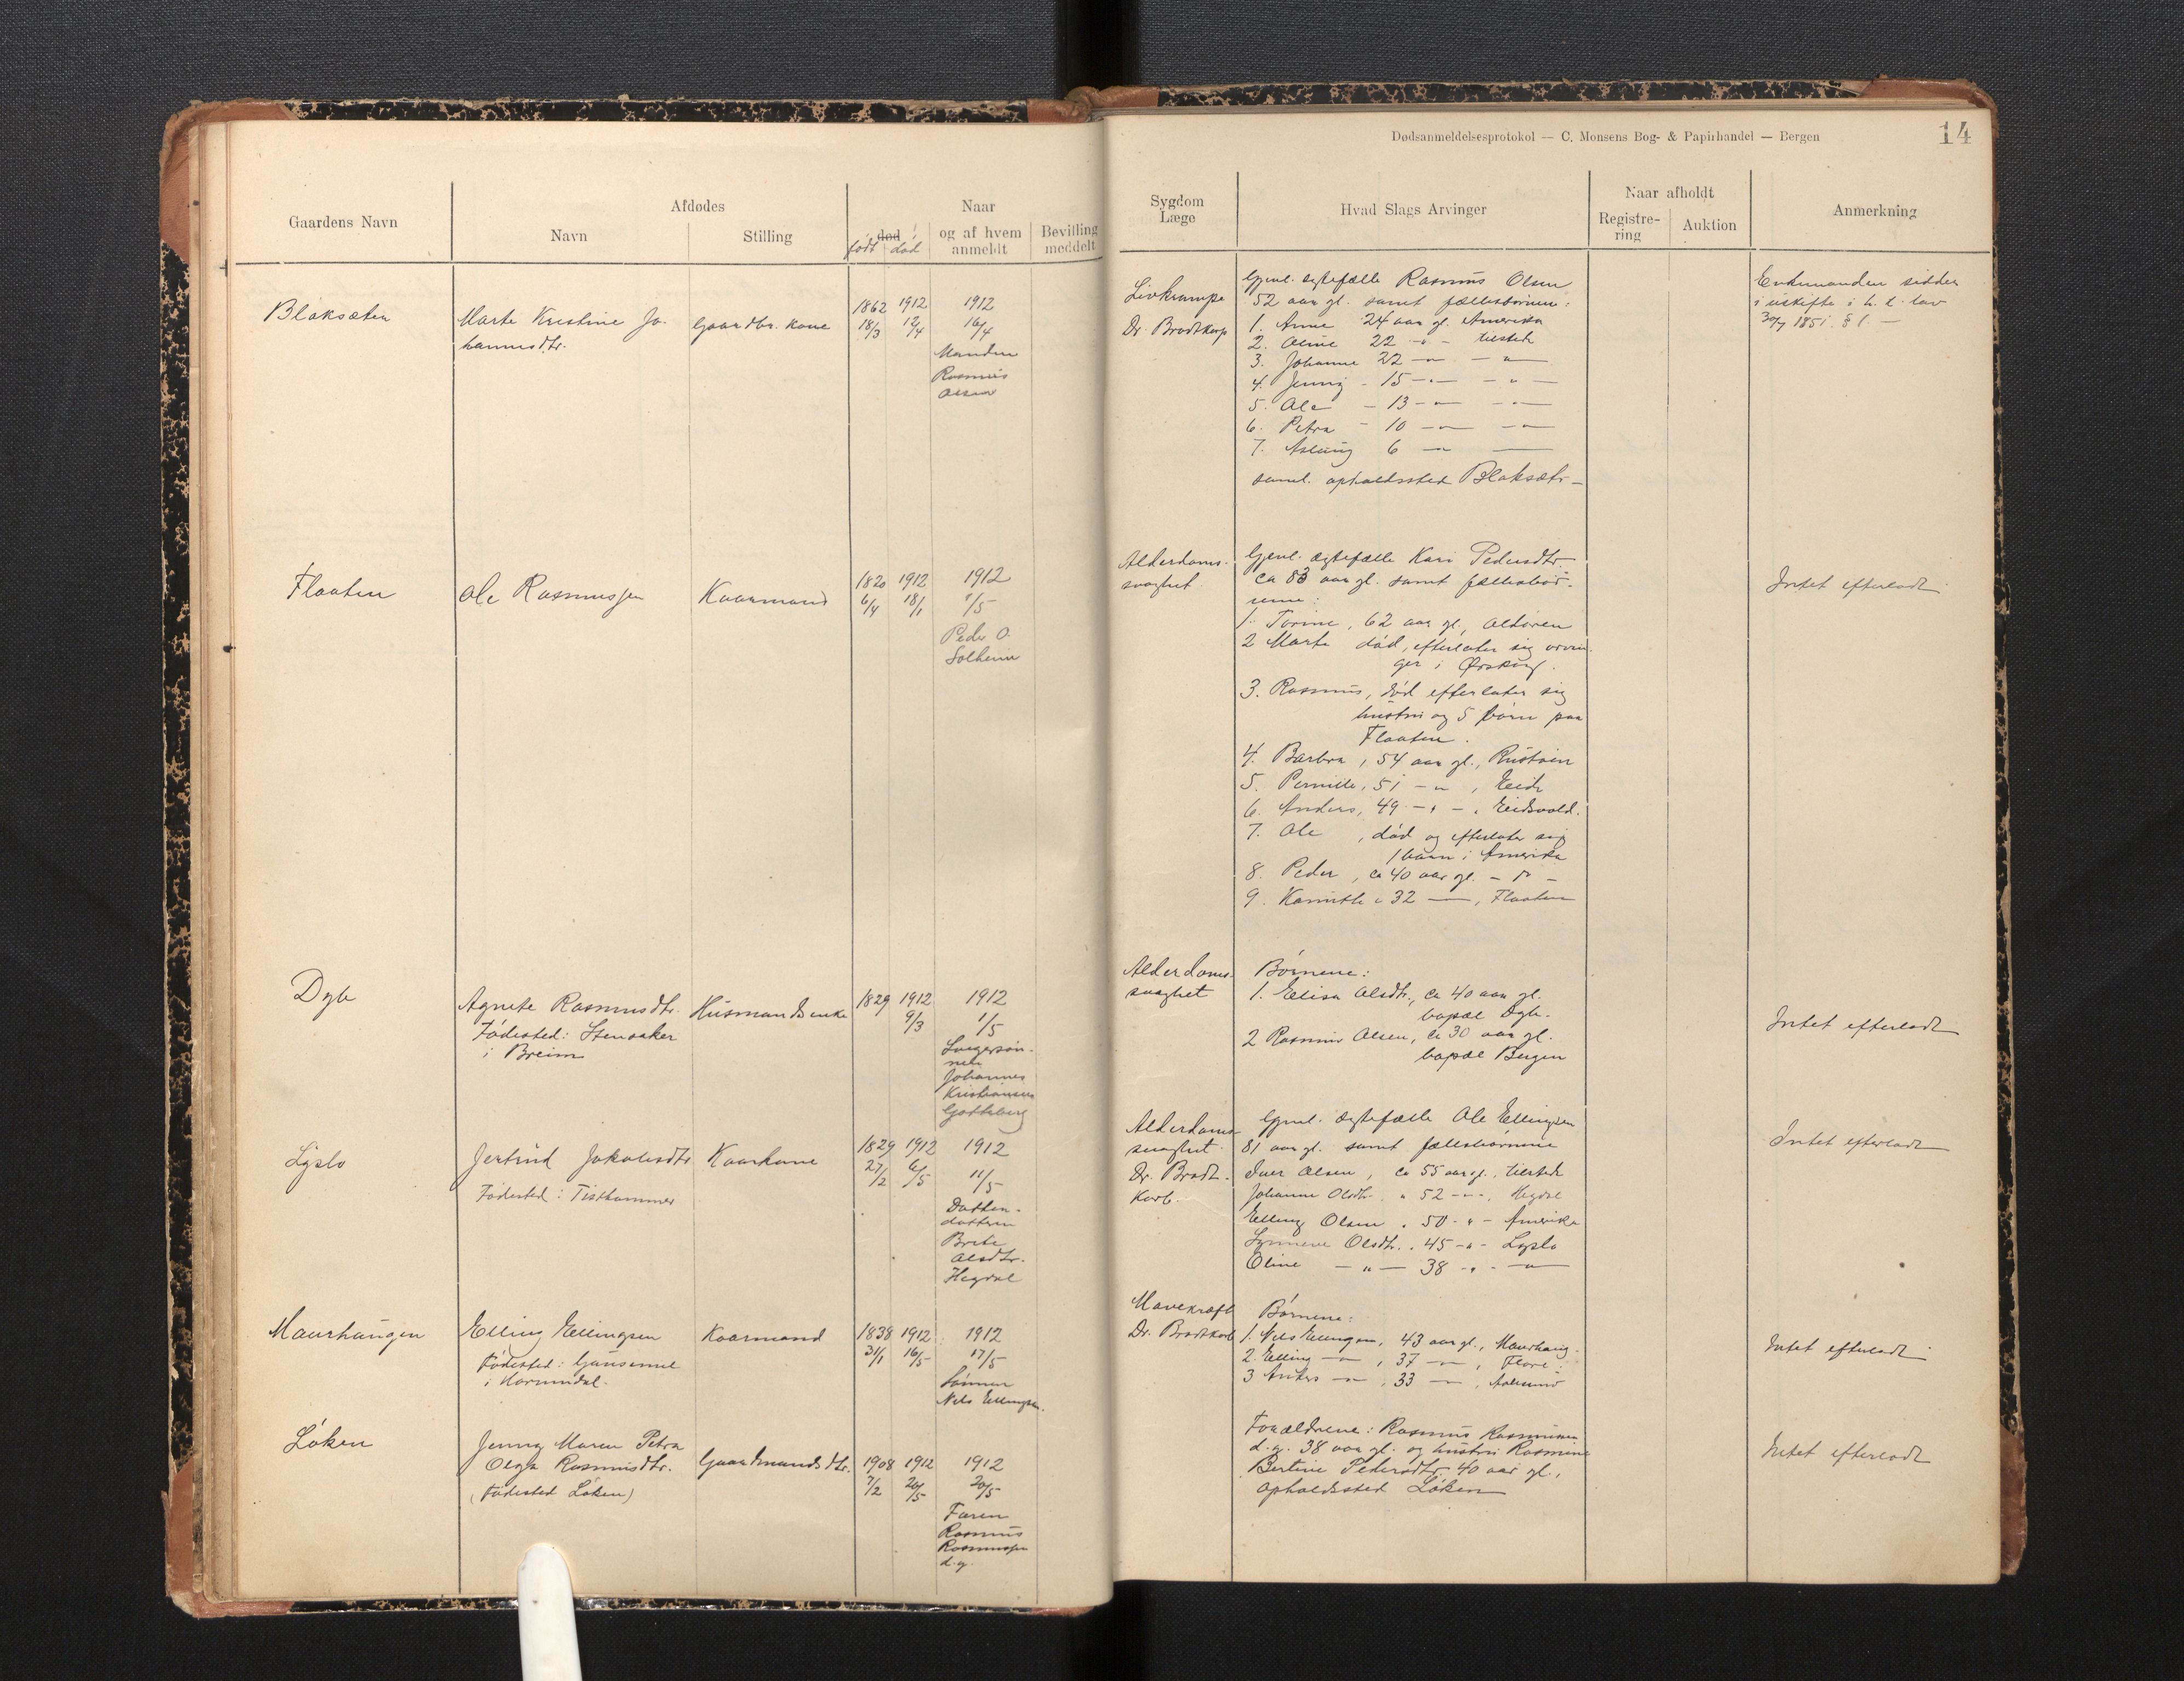 Dødsanmeldelsesprotokol — C. Monsens Bog- & Papirhandel — Bergen
14
Gaardens Navn
Afdødes
Navn
Stilling
Naar
død
født død
og af hvem
anmeldt
Bevilling
meddelt
Sygdom
Læge
Hvad Slags Arvinger
Naar afholdt
Registre-
ring
Auktion
Anmerkning
Blaksæter
Marte Kristine Jo-
hannesdtr.
Gaardbr. kone
1862 1912
18/3 12/4
1912
16/4
Manden
Rasmus
Olsen
Livkrampe
Dr. Bradtkorp
Gjenl. ægtefælle Rasmus Olsen
52 aar gl. samt fællesbørnene:
1. Anne 24 aar gl. Amerika
2. Oline 22 - " - tilsted
3. Johanne 22 — " — - "
4. Jenny - 15 - " — - " —
5. Ole - 13 - " — - " —
6. Petra - 10 — " — — " —
7. Aslaug 6 — " ——
saml. opholdssted Blaksætr —
Enkemanden sidder
i uskifte i h. t. lov
30/7 1851 § 1. —
Flaaten
Ole Rasmussen
Kaarmand
1820 1912
6/4 18/1
1912
1/5
Peder O.
Solheim
Alderdoms-
svaghet
Gjenl. ægtefælle Kari Pedersdtr.
ca 83 aar gl. samt fællesbør-
nene:
1. Torine, 62 aar gl.,
2 Marte død, efterlater sig arvin-
ger i Ørskog.
3. Rasmus, død efterlater sig
hustru og 5 børn paa
Flaaten.
4. Barbra, 54 aar gl., Rustøen
5. Pernille, 51 - " , Eid
6. Anders, 49 - " - , Eidsvold.
7. Ole , død og efterlater sig
1 barn i Amerika
8. Peder , ca 40 aar gl. - " -
9. 32 —— , Flaaten
Intet efterladt
Dyb
Agnete Rasmusdtr.
Fødested: Stensaker
i Breim
Husmandsenke
1829 1912
9/3
1912
1/5
Svigersøn-
nen
Johannes
Kristiansen
Gotteberg
Alderdoms-
svaghet
Børnene:
1. Elisa Olsdtr., ca 40 aar gl.
bopæl Dyb.
2 Rasmus Olsen, ca 30 aar gl.
bopæl Bergen
Intet efterladt
Lyslo
Jertrud Jakobsdtr
Fødested: Tisthammer
Kaarkone
1829 1912
27/2 6/5
1912
11/5
Datter-
datteren
Brite
Olsdtr.
Hegdal
Alderdoms
svaghet.
Dr. Bradt-
korb.
Gjenl. ægtefælle Ole Ellingsen
81 aar gl. samt fællesbørnene
Iver Olsen, ca 55 aar gl., tilsted
Johanne Olsdtr. " 52 - " -, Hegdal
Elling Olsen . 50 - " - Amerika
Synneve Olsdtr. . 45 - " - Lyslo
Oline — " — 38 - " - — " —
Intet efterladt
Maurhaugen
Elling Ellingsen
Fødested:
i Hornindal.
Kaarmand
1838 1912
31/1 16/5
1912
17/5
Sønnen
Nils Ellingsen.
Mavekræft
Dr. Bradtkorb
Børnene:
1. Nils Ellingsen, 43 aar gl., Maurhaug.
2. Elling — " — , 37 — " — , Florø.
3 Anders — " — , 33 — " — , Aalesund
Intet efterladt
Løken
Jenny Maren Petra
Olga Rasmusdtr.
(Fødested Løken)
Gaardmandsdtr.
1908 1912
7/2 20/5
1912
20/5
Faren
Rasmus
Rasmussen
d.y.
Forældrene: Rasmus Rasmussen
d.y. 38 aar gl. og hustru Rasmine
Bertine Pedersdtr. 40 aar gl.,
opholdssted Løken
Intet efterladt